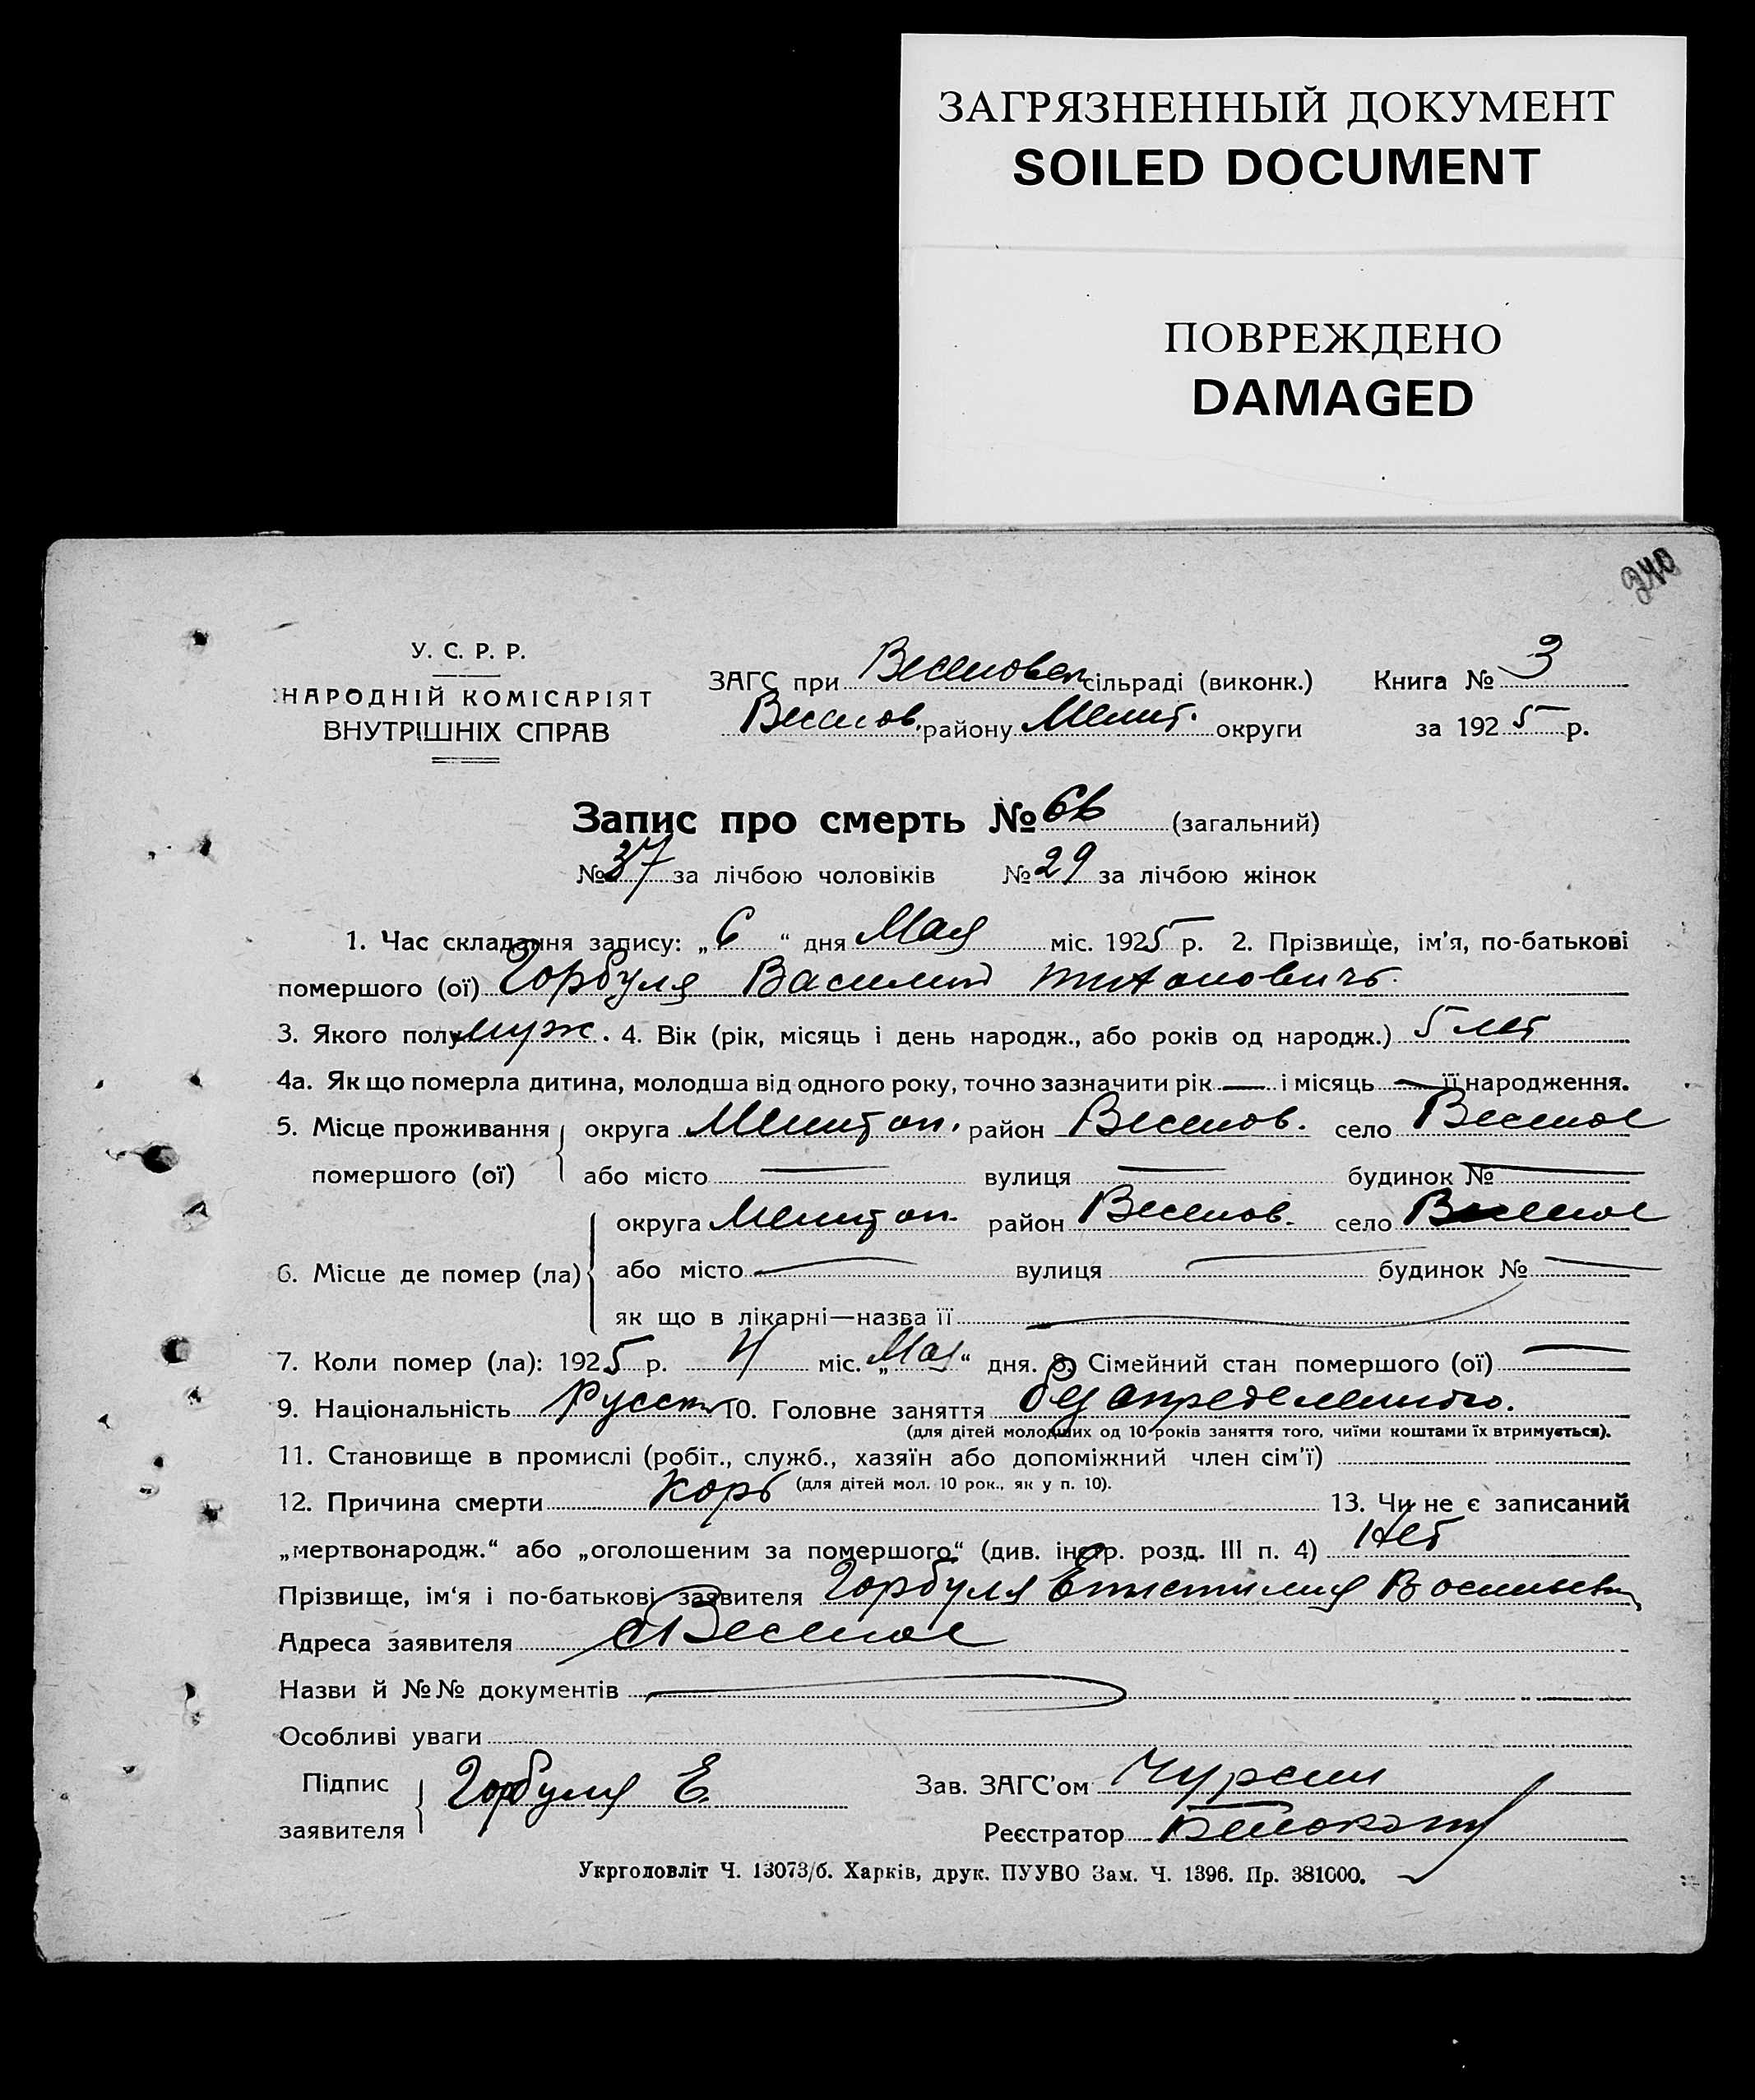 ЗАГРЯЗНЕННЫЙ ДОКУМЕНТ
SOILED DOCUMENT
ПОВРЕЖДЕНО
DAMAGED
240
У. С. Р. Р.
НАРОДНІЙ КОМІСАРІЯТ
ВНУТРІШНІХ СПРАВ
ЗАГС при Веселовск сільраді (виконк.) Книга № 3
Веселов. району Мелит. округи за 1925 р.
Запис про смерть № 66 (загальний)
№ 37 за лічбою чоловіків № 29 за лічбою жінок
1. Час складання запису: „6“ дня Мая міс. 1925 р. 2. Прізвище, ім'я, по-батькові
помершого (ої) Горбуля Василий
3. Якого полу муж. 4. Вік (рік, місяць і день народж., або років од народж.) 5 лет
4а. Як що померла дитина, молодша від одного року, точно зазначити рік — і місяць — її народження.
5. Місце проживання помершого (ої) округа Мелитоп. район Веселов. село Веселое
або місто — вулиця — будинок № —
6. Місце де помер (ла) округа Мелитоп. район Веселов. село Веселое
або місто — вулиця — будинок № —
як що в лікарні—назва її —
7. Коли помер (ла): 1925 р. 4 міс. „Мая“ дня. 8. Сімейний стан помершого (ої) —
9. Національність Русск 10. Головне заняття без определенного.
(для дітей молодших од 10 років заняття того, чиїми коштами їх втримується).
11. Становище в промислі (робіт., служб., хазяїн або допоміжний член сім'ї)
(для дітей мол. 10 рок., як у п. 10).
12. Причина смерти Корь 13. Чи не є записаний
„мертвонародж.“ або „оголошеним за помершого“ (див. інстр. розд. III п. 4) Нет
Прізвище, ім'я і по-батькові заявителя Горбуля
Адреса заявителя с Веселое
Назви й №№ документів —
Особливі уваги
Підпис заявителя Горбуля Е. Зав. ЗАГС'ом Чурсин
Реєстратор
Укрголовліт Ч. 13073/б. Харків, друк. ПУУВО Зам. Ч. 1396. Пр. 381000.